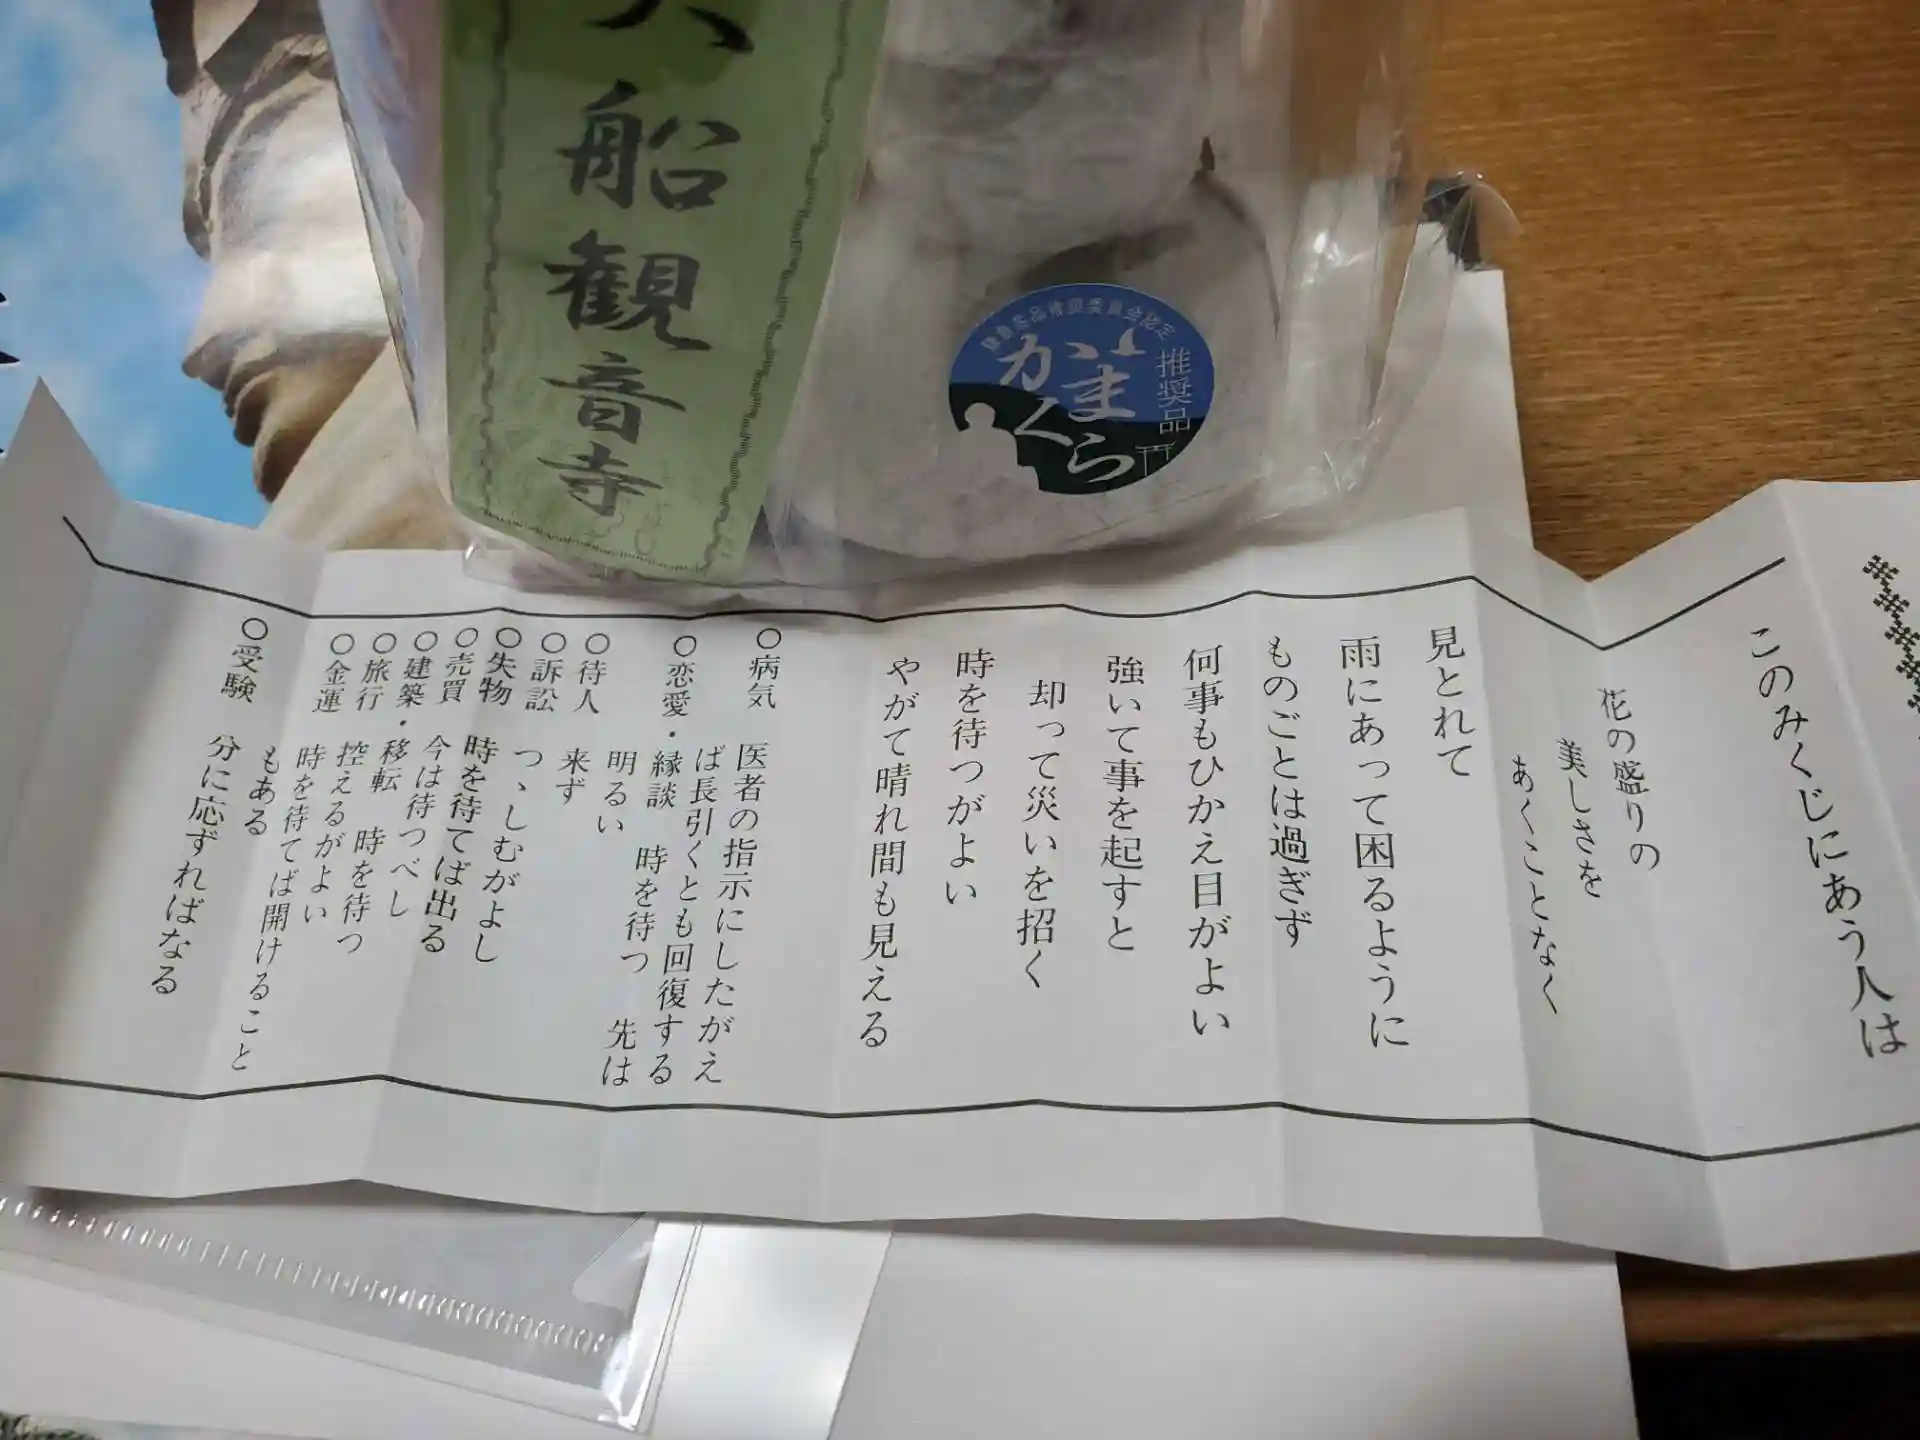 船観音寺
かまくら
推奨品
このみくじにあう人は
花の盛りの
美しさを
あくことなく
見とれて
雨にあって困るように
ものごとは過ぎず
何事もひかえ目がよい
強いて事を起すと
却って災いを招く
時を待つがよい
やがて晴れ間も見える
○病気 医者の指示にしたがえ
ば長引くとも回復する
○恋愛・縁談 時を待つ 先は
明るい
○待人 来ず
○訴訟 つゝしむがよし
○失物 時を待てば出る
○売買 今は待つべし
○建築・移転 時を待つ
○旅行 控えるがよい
○金運 時を待てば開けること
もある
○受験 分に応ずればなる